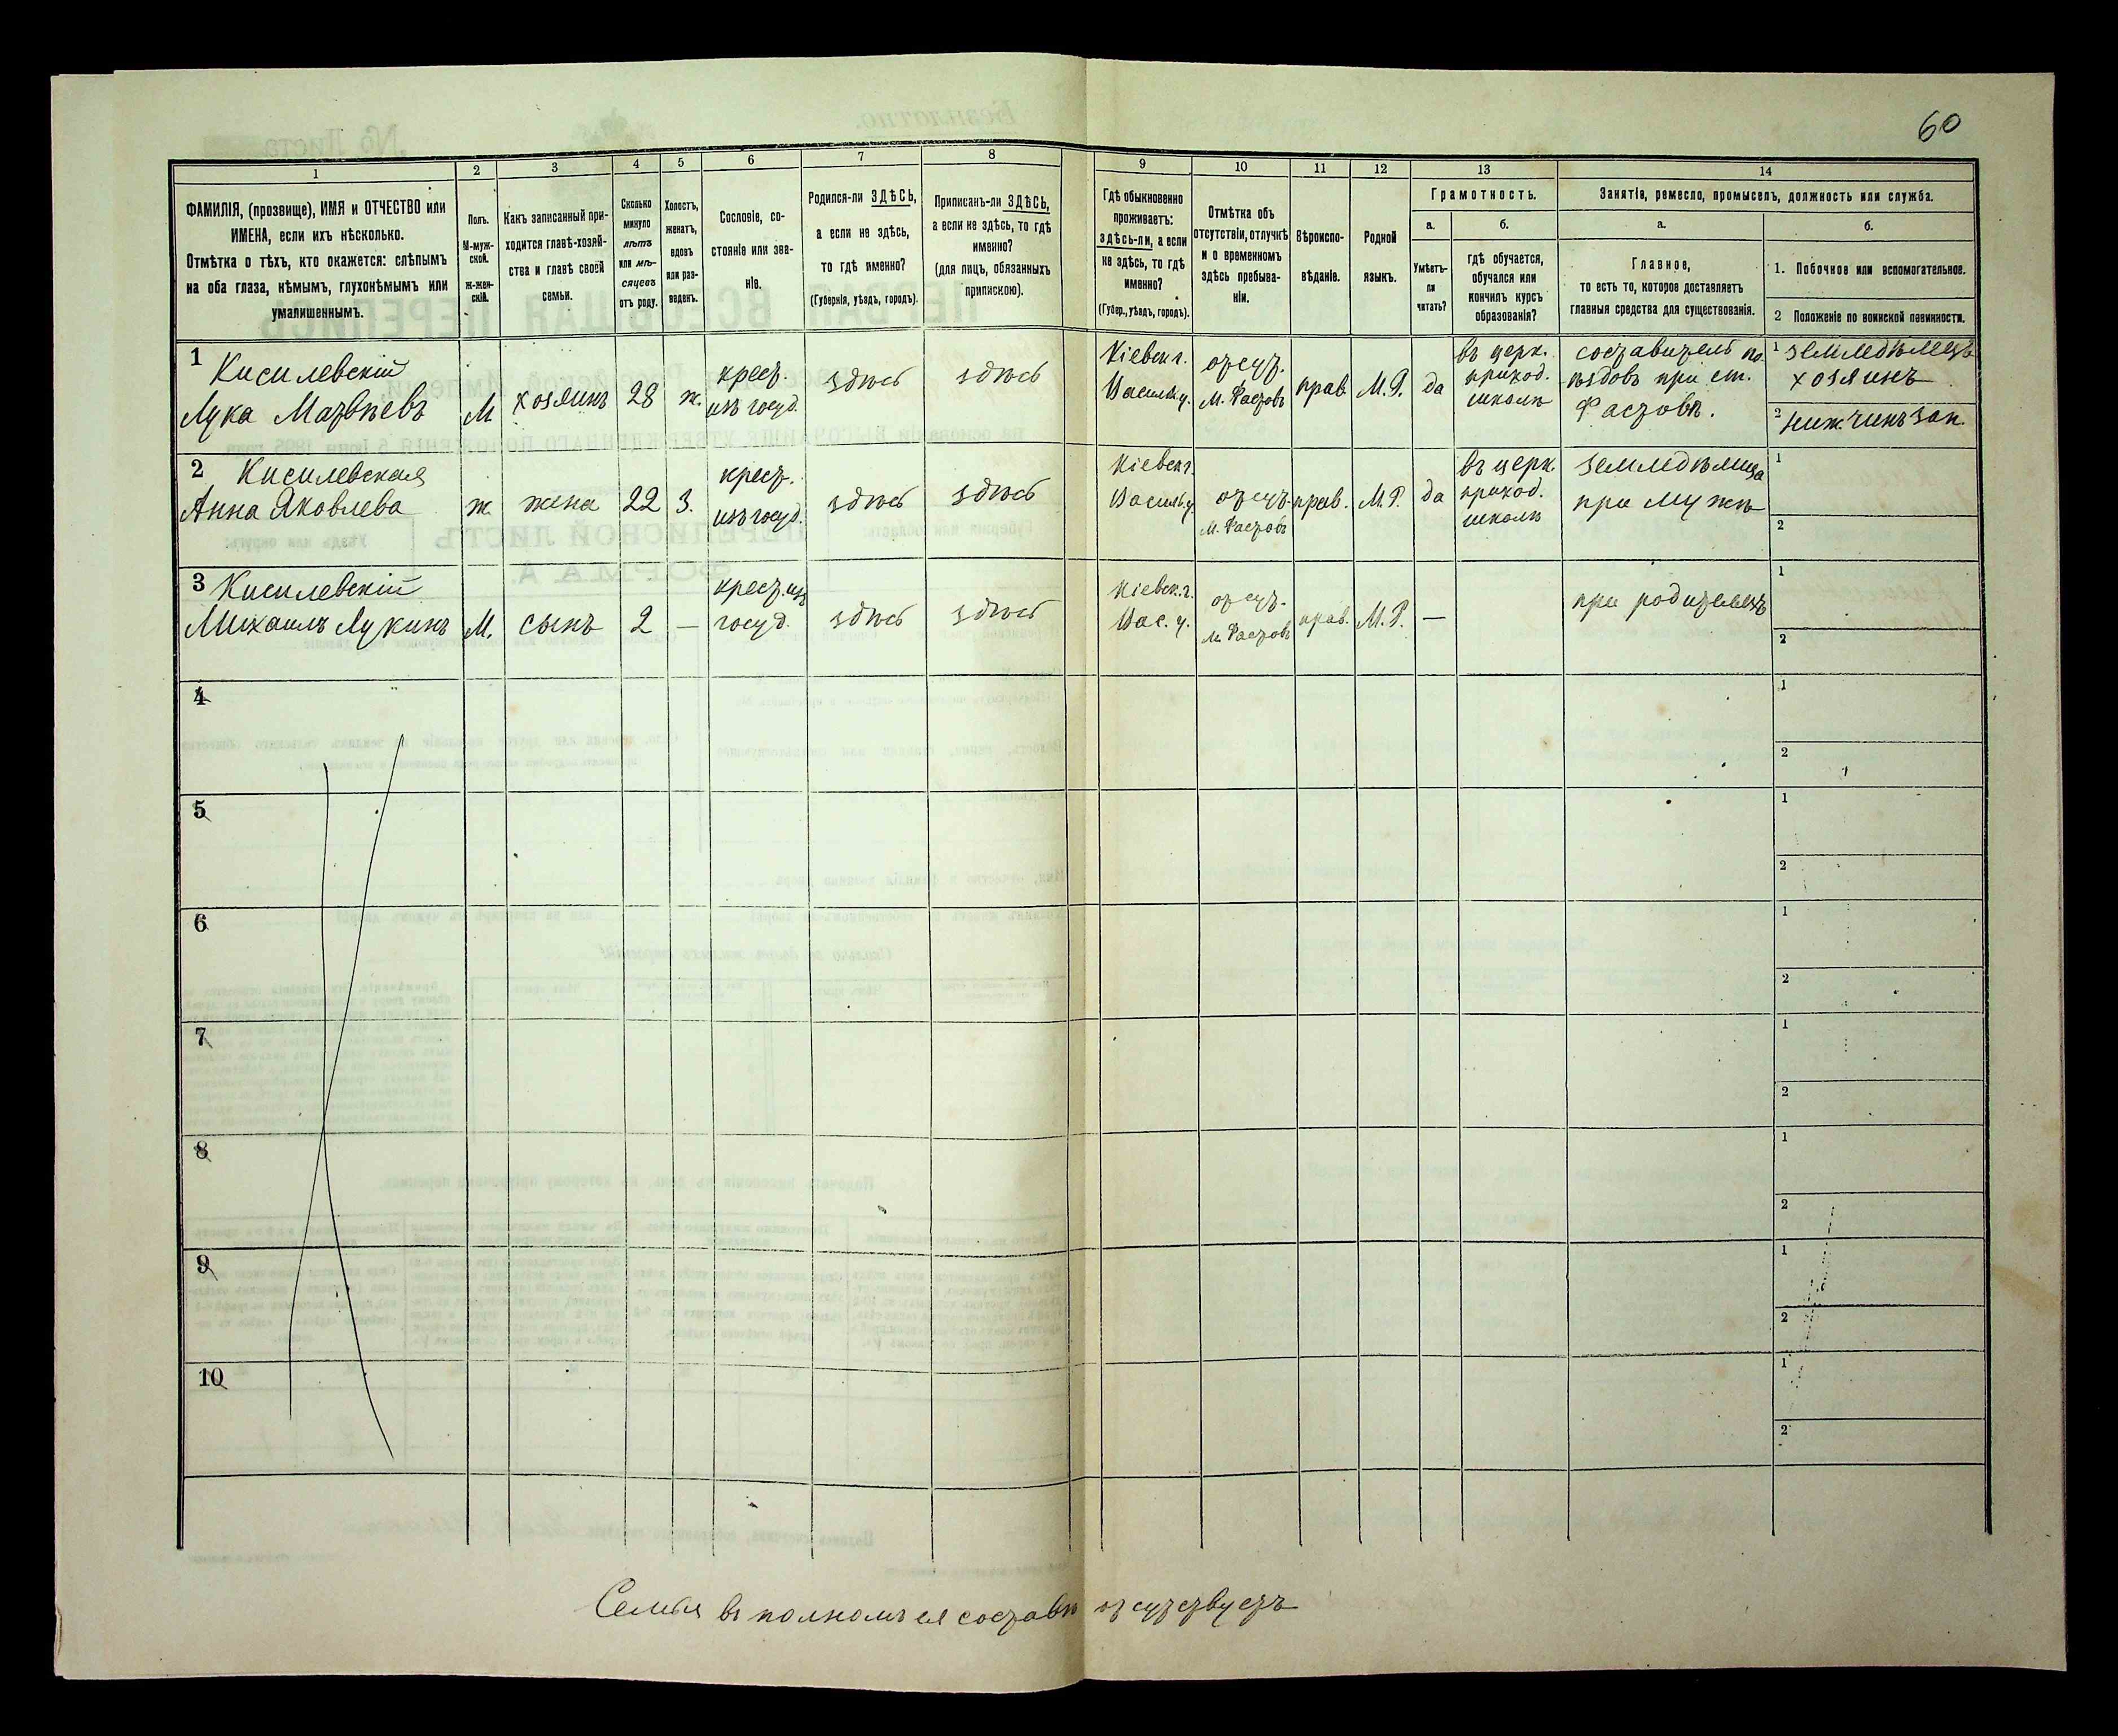 60
1
2
3
4
5
6
7
8
ФАМИЛІЯ, (прозвище), ИМЯ и ОТЧЕСТВО или
ИМЕНА, если ихъ нѣсколько.
Отмѣтка о тѣхъ, кто окажется: слѣпымъ
на оба глаза, нѣмымъ, глухонѣмымъ или
умалишеннымъ.
Полъ.
М-муж-
ской.
Ж-жен-
скій.
Какъ записанный при-
ходится главѣ-хозяй-
ства и главѣ своей
семьи.
Сколько
минуло
лѣтъ
или мѣ-
сяцевъ
отъ роду.
Холостъ,
женатъ,
вдовъ
или раз-
веденъ.
Сословіе, со-
стояніе или зва-
ніе.
Родился-ли ЗДѢСЬ,
а если не здѣсь,
то гдѣ именно?
(Губернія, уѣздъ, городъ).
Приписанъ-ли ЗДѢСЬ,
а если не здѣсь, то гдѣ
именно?
(для лицъ, обязанныхъ
припискою).
9
10
11
12
13
14
Гдѣ обыкновенно
проживаетъ:
здѣсь-ли, а если
не здѣсь, то гдѣ
именно?
(Губер., уѣздъ, городъ).
Отмѣтка объ
отсутствіи, отлучкѣ
и о временномъ
здѣсь пребыва-
ніи.
Вѣроиспо-
вѣданіе.
Родной
языкъ.
Грамотность.
а.
б.
Умѣетъ-
ли
читать?
гдѣ обучается,
обучался или
кончилъ курсъ
образованія?
Занятія, ремесло, промыселъ, должность или служба.
а.
б.
Главное,
то есть то, которое доставляетъ
главныя средства для существованія.
1. Побочное или вспомогательное.
2 Положеніе по воинской повинности.
1
Кисилевскій
Лука Матвѣевъ
М
хозяинъ
28
ж.
крест.
изъ госуд.
здѣсь
здѣсь
Кіевск г.
Васильк у.
отсут.
М. Фастовъ
прав.
М.Р.
да
въ церк.
приход.
школѣ
составитель по-
ѣздовъ при ст.
Фастовъ.
1 земледѣлецъ
хозяинъ
2 ниж. чинъ зап.
2
Кисилевская
Анна Яковлева
ж
жена
22
з.
крест.
изъ госуд.
здѣсь
здѣсь
Кіевск г.
Васильк у
отсут.
М. Фастовъ
прав.
М.Р.
да
въ церк
приход.
школѣ
земледѣлица
при мужѣ
1
2
3
Кисилевскій
Михаилъ Лукинъ
М.
сынъ
2
—
крест. изъ
госуд.
здѣсь
здѣсь
Кіевск. г.
Вас. у.
отсут.
М. Фастовъ
прав.
М.Р.
—
при родителяхъ
1
2
4
1
2
5
1
2
6
1
2
7
1
2
8
1
2
9
1
2
10
1
2
Семья въ полномъ ея составѣ отсутствуетъ